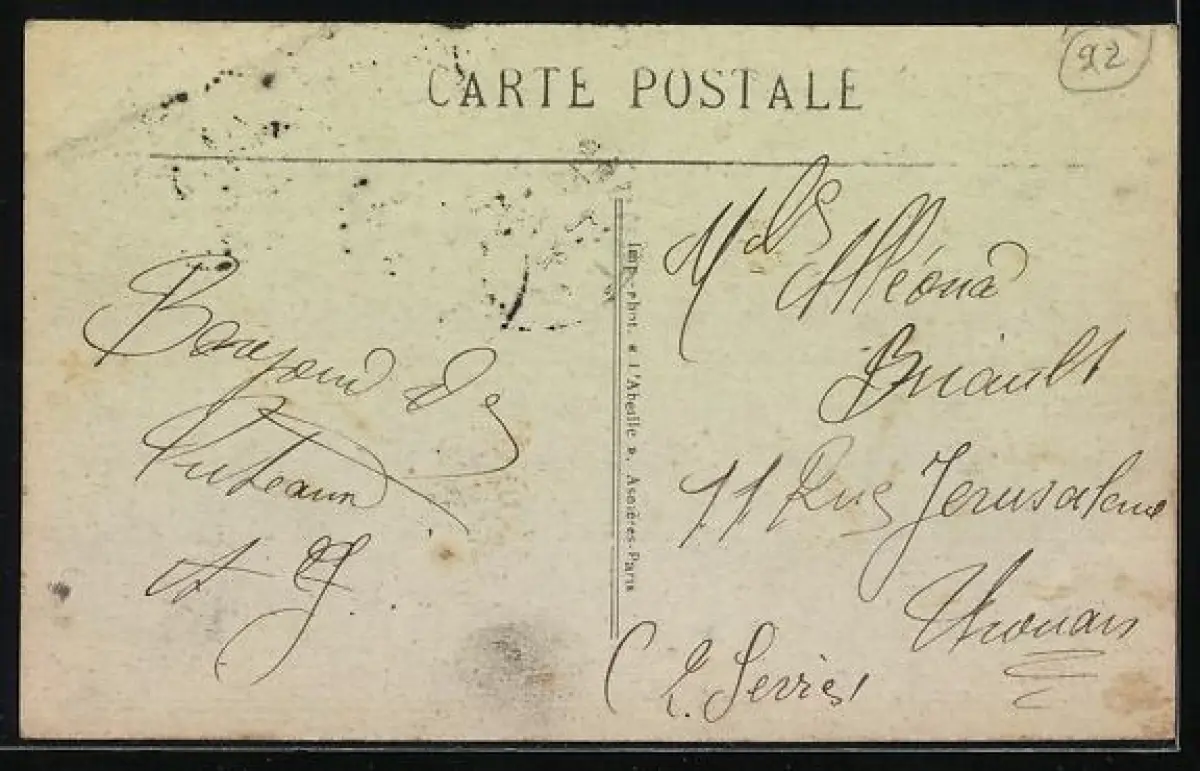 CARTE POSTALE
92
Bonjour de
Puteaux
Imp.-phot. « l'Abeille », Asnières-Paris
Mdlle
Briault
11 Rue Jerusalem
Thouars
( 2. Sevres